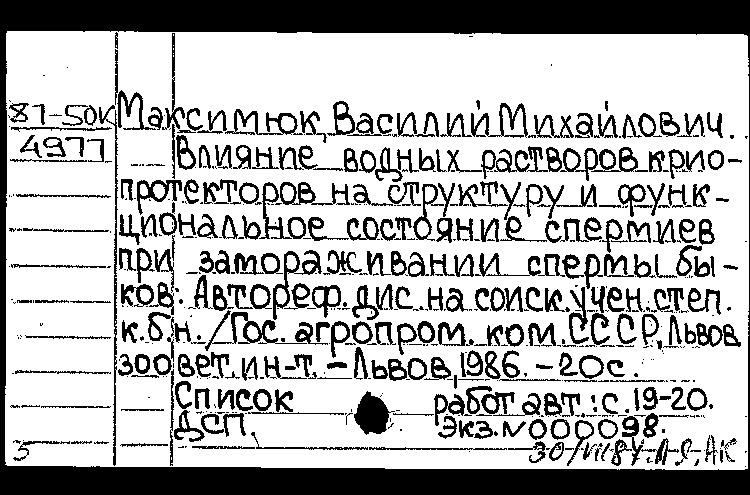 87-50К Максимюк, Василий Михайлович.
4977 Влияние водных растворов крио-
протекторов на структуру и функ-
циональное состояние спермиев
при замораживании спермы бы-
ков: Автореф. дис. на соиск. учен. степ.
к.б.н. / Гос. агропром. ком. СССР, Львов
зоовет. ин-т. - Львов, 1986. - 20 с.
Список работ авт.: с. 19-20.
ДСП. Экз. N000098.
5